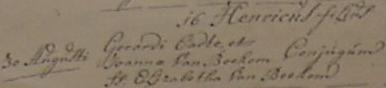 16 Henricus filius
30 Augusti Gerardi Eadte et
Joanna Van Beekom Conjugum
st Elizabetha Van Beekom